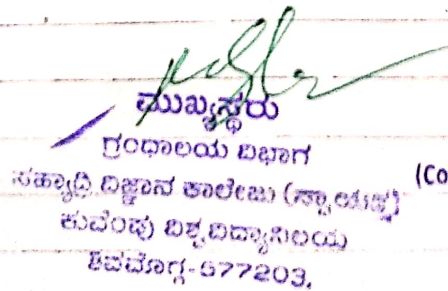 ಮುಖ್ಯಸ್ಥರು
ಗ್ರಂಥಾಲಯ ವಿಭಾಗ
ಸಹ್ಯಾದ್ರಿ ವಿಜ್ಞಾನ ಕಾಲೇಜು (ಸ್ವಾಯತ್ತ)
(Co
ಕುವೆಂಪು ವಿಶ್ವವಿದ್ಯಾನಿಲಯ
ಶಿವಮೊಗ್ಗ-577203.